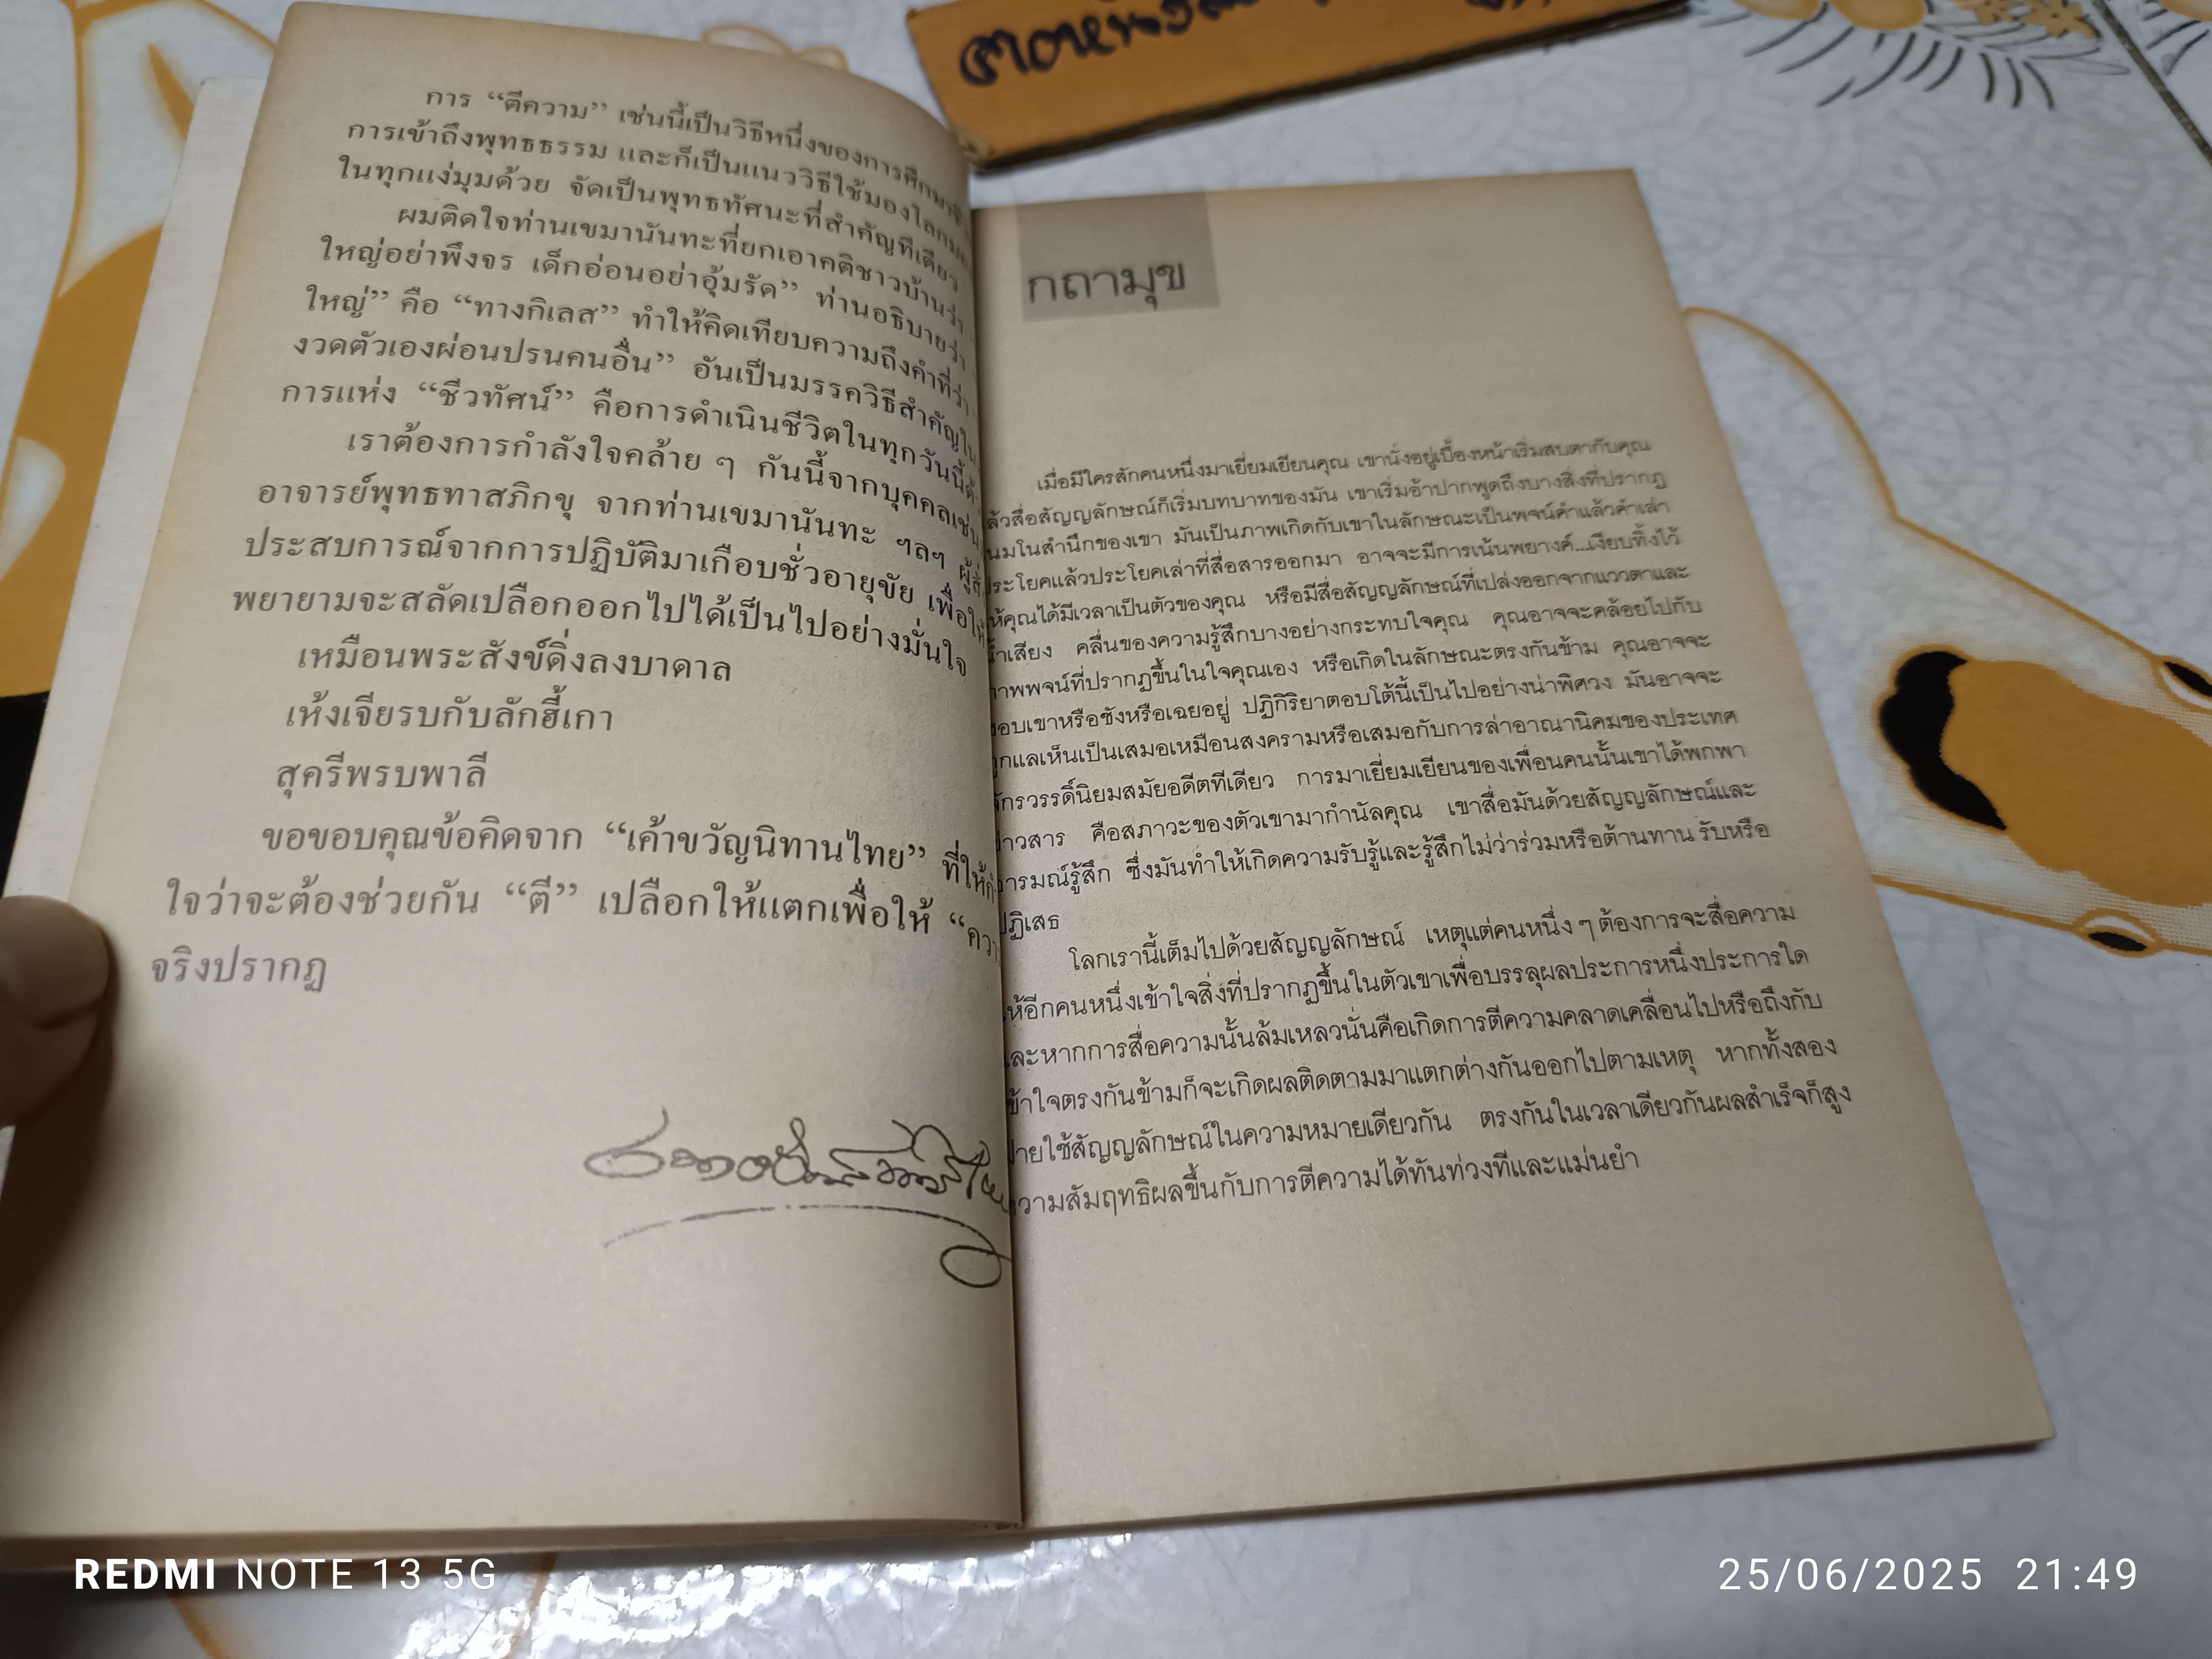 การ “ตีความ” เช่นนี้เป็นวิธีหนึ่งของการศึกษา
การเข้าถึงพุทธธรรม และก็เป็นแนววิธีใช้มองโลก
ในทุกแง่มุมด้วย จัดเป็นพุทธทัศนะที่สำคัญทีเดียว
ผมติดใจท่านเขมานันทะที่ยกเอาคติชาวบ้านว่า
ใหญ่อย่าพึงจร เด็กอ่อนอย่าอุ้มรัด” ท่านอธิบายว่า
ใหญ่” คือ “ทางกิเลส” ทำให้คิดเทียบความถึงคำที่ว่า
งวดตัวเองผ่อนปรนคนอื่น” อันเป็นมรรควิธีสำคัญใน
การแห่ง “ชีวทัศน์” คือการดำเนินชีวิตในทุกวันนี้
เราต้องการกำลังใจคล้าย ๆ กันนี้จากบุคคลเช่น
อาจารย์พุทธทาสภิกขุ จากท่านเขมานันทะ ฯลฯ
ประสบการณ์จากการปฏิบัติมาเกือบชั่วอายุขัย เพื่อ
พยายามจะสลัดเปลือกออกไปได้เป็นไปอย่างมั่นใจ
เหมือนพระสังข์ดิ่งลงบาดาล
เห้งเจียรบกับลักฮี้เกา
สุครีพรบพาลี
ขอขอบคุณข้อคิดจาก “เค้าขวัญนิทานไทย” ที่ให้
ใจว่าจะต้องช่วยกัน “ตี” เปลือกให้แตกเพื่อให้
จริงปรากฏ
กถามุข
เมื่อมีใครสักคนหนึ่งมาเยี่ยมเยียนคุณ เขานั่งอยู่เบื้องหน้าเริ่มสบตากับคุณ
ล้วสื่อสัญญลักษณ์ก็เริ่มบทบาทของมัน เขาเริ่มอ้าปากพูดถึงบางสิ่งที่ปรากฏ
นมโนสำนึกของเขา มันเป็นภาพเกิดกับเขาในลักษณะเป็นพจน์คำแล้วคำเล่า
ประโยคแล้วประโยคเล่าที่สื่อสารออกมา อาจจะมีการเน้นพยางค์...เงียบทิ้งไว้
ห้คุณได้มีเวลาเป็นตัวของคุณ หรือมีสื่อสัญญลักษณ์ที่เปล่งออกจากแววตาและ
น้ำเสียง คลื่นของความรู้สึกบางอย่างกระทบใจคุณ คุณอาจจะคล้อยไปกับ
าพพจน์ที่ปรากฏขึ้นในใจคุณเอง หรือเกิดในลักษณะตรงกันข้าม คุณอาจจะ
ชอบเขาหรือชังหรือเฉยอยู่ ปฏิกิริยาตอบโต้นี้เป็นไปอย่างน่าพิศวง มันอาจจะ
ูกแลเห็นเป็นเสมอเหมือนสงครามหรือเสมอกับการล่าอาณานิคมของประเทศ
จักรวรรดิ์นิยมสมัยอดีตทีเดียว การมาเยี่ยมเยียนของเพื่อนคนนั้นเขาได้พกพา
ข่าวสาร คือสภาวะของตัวเขามากำนัลคุณ เขาสื่อมันด้วยสัญญลักษณ์และ
ารมณ์รู้สึก ซึ่งมันทำให้เกิดความรับรู้และรู้สึกไม่ว่าร่วมหรือต้านทาน รับหรือ
ปฏิเสธ
โลกเรานี้เต็มไปด้วยสัญญลักษณ์ เหตุแต่คนหนึ่ง ๆ ต้องการจะสื่อความ
ห้อีกคนหนึ่งเข้าใจสิ่งที่ปรากฏขึ้นในตัวเขาเพื่อบรรลุผลประการหนึ่งประการใด
และหากการสื่อความนั้นล้มเหลวนั่นคือเกิดการตีความคลาดเคลื่อนไปหรือถึงกับ
ข้าใจตรงกันข้ามก็จะเกิดผลติดตามมาแตกต่างกันออกไปตามเหตุ หากทั้งสอง
่ายใช้สัญญลักษณ์ในความหมายเดียวกัน ตรงกันในเวลาเดียวกันผลสำเร็จก็สูง
วามสัมฤทธิผลขึ้นกับการตีความได้ทันท่วงทีและแม่นยำ
REDMI NOTE 13 5G
25/06/2025 21:49